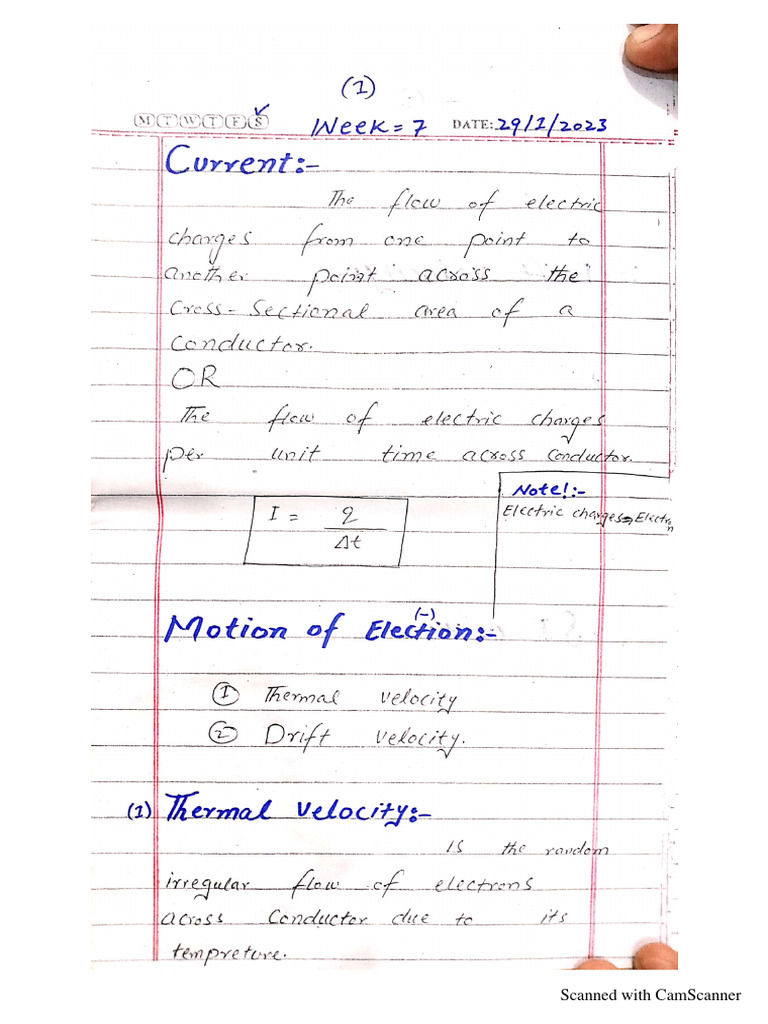 (1)
M T W T F S Week = 7 DATE: 29/1/2023
Current:-
The flow of electric
charges from one point to
another point across the
cross-sectional area of a
conductor.
OR
The flow of electric charges
per unit time across conductor.
Note!:-
Electric charges→Electron
I = q
Δt
(-)
Motion of Election:-
① Thermal velocity
② Drift velocity.
(1) Thermal velocity:-
Is the random
irregular flow of electrons
across Conductor due to its
tempreture.
Scanned with CamScanner